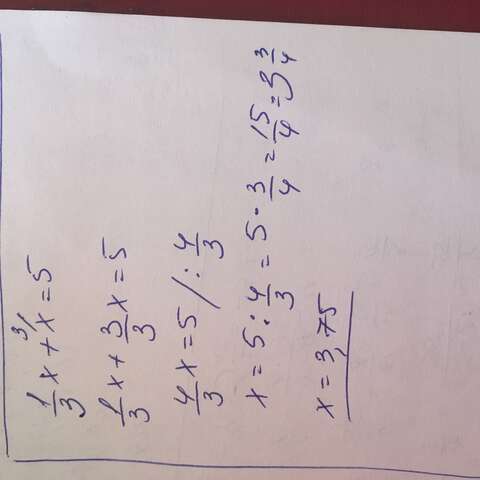 1/3 x + ³⁄x = 5
1/3 x + 3/3 x = 5
4/3 x = 5 / : 4/3
x = 5 : 4/3 = 5 · 3/4 = 15/4 = 3 3/4
x = 3,75